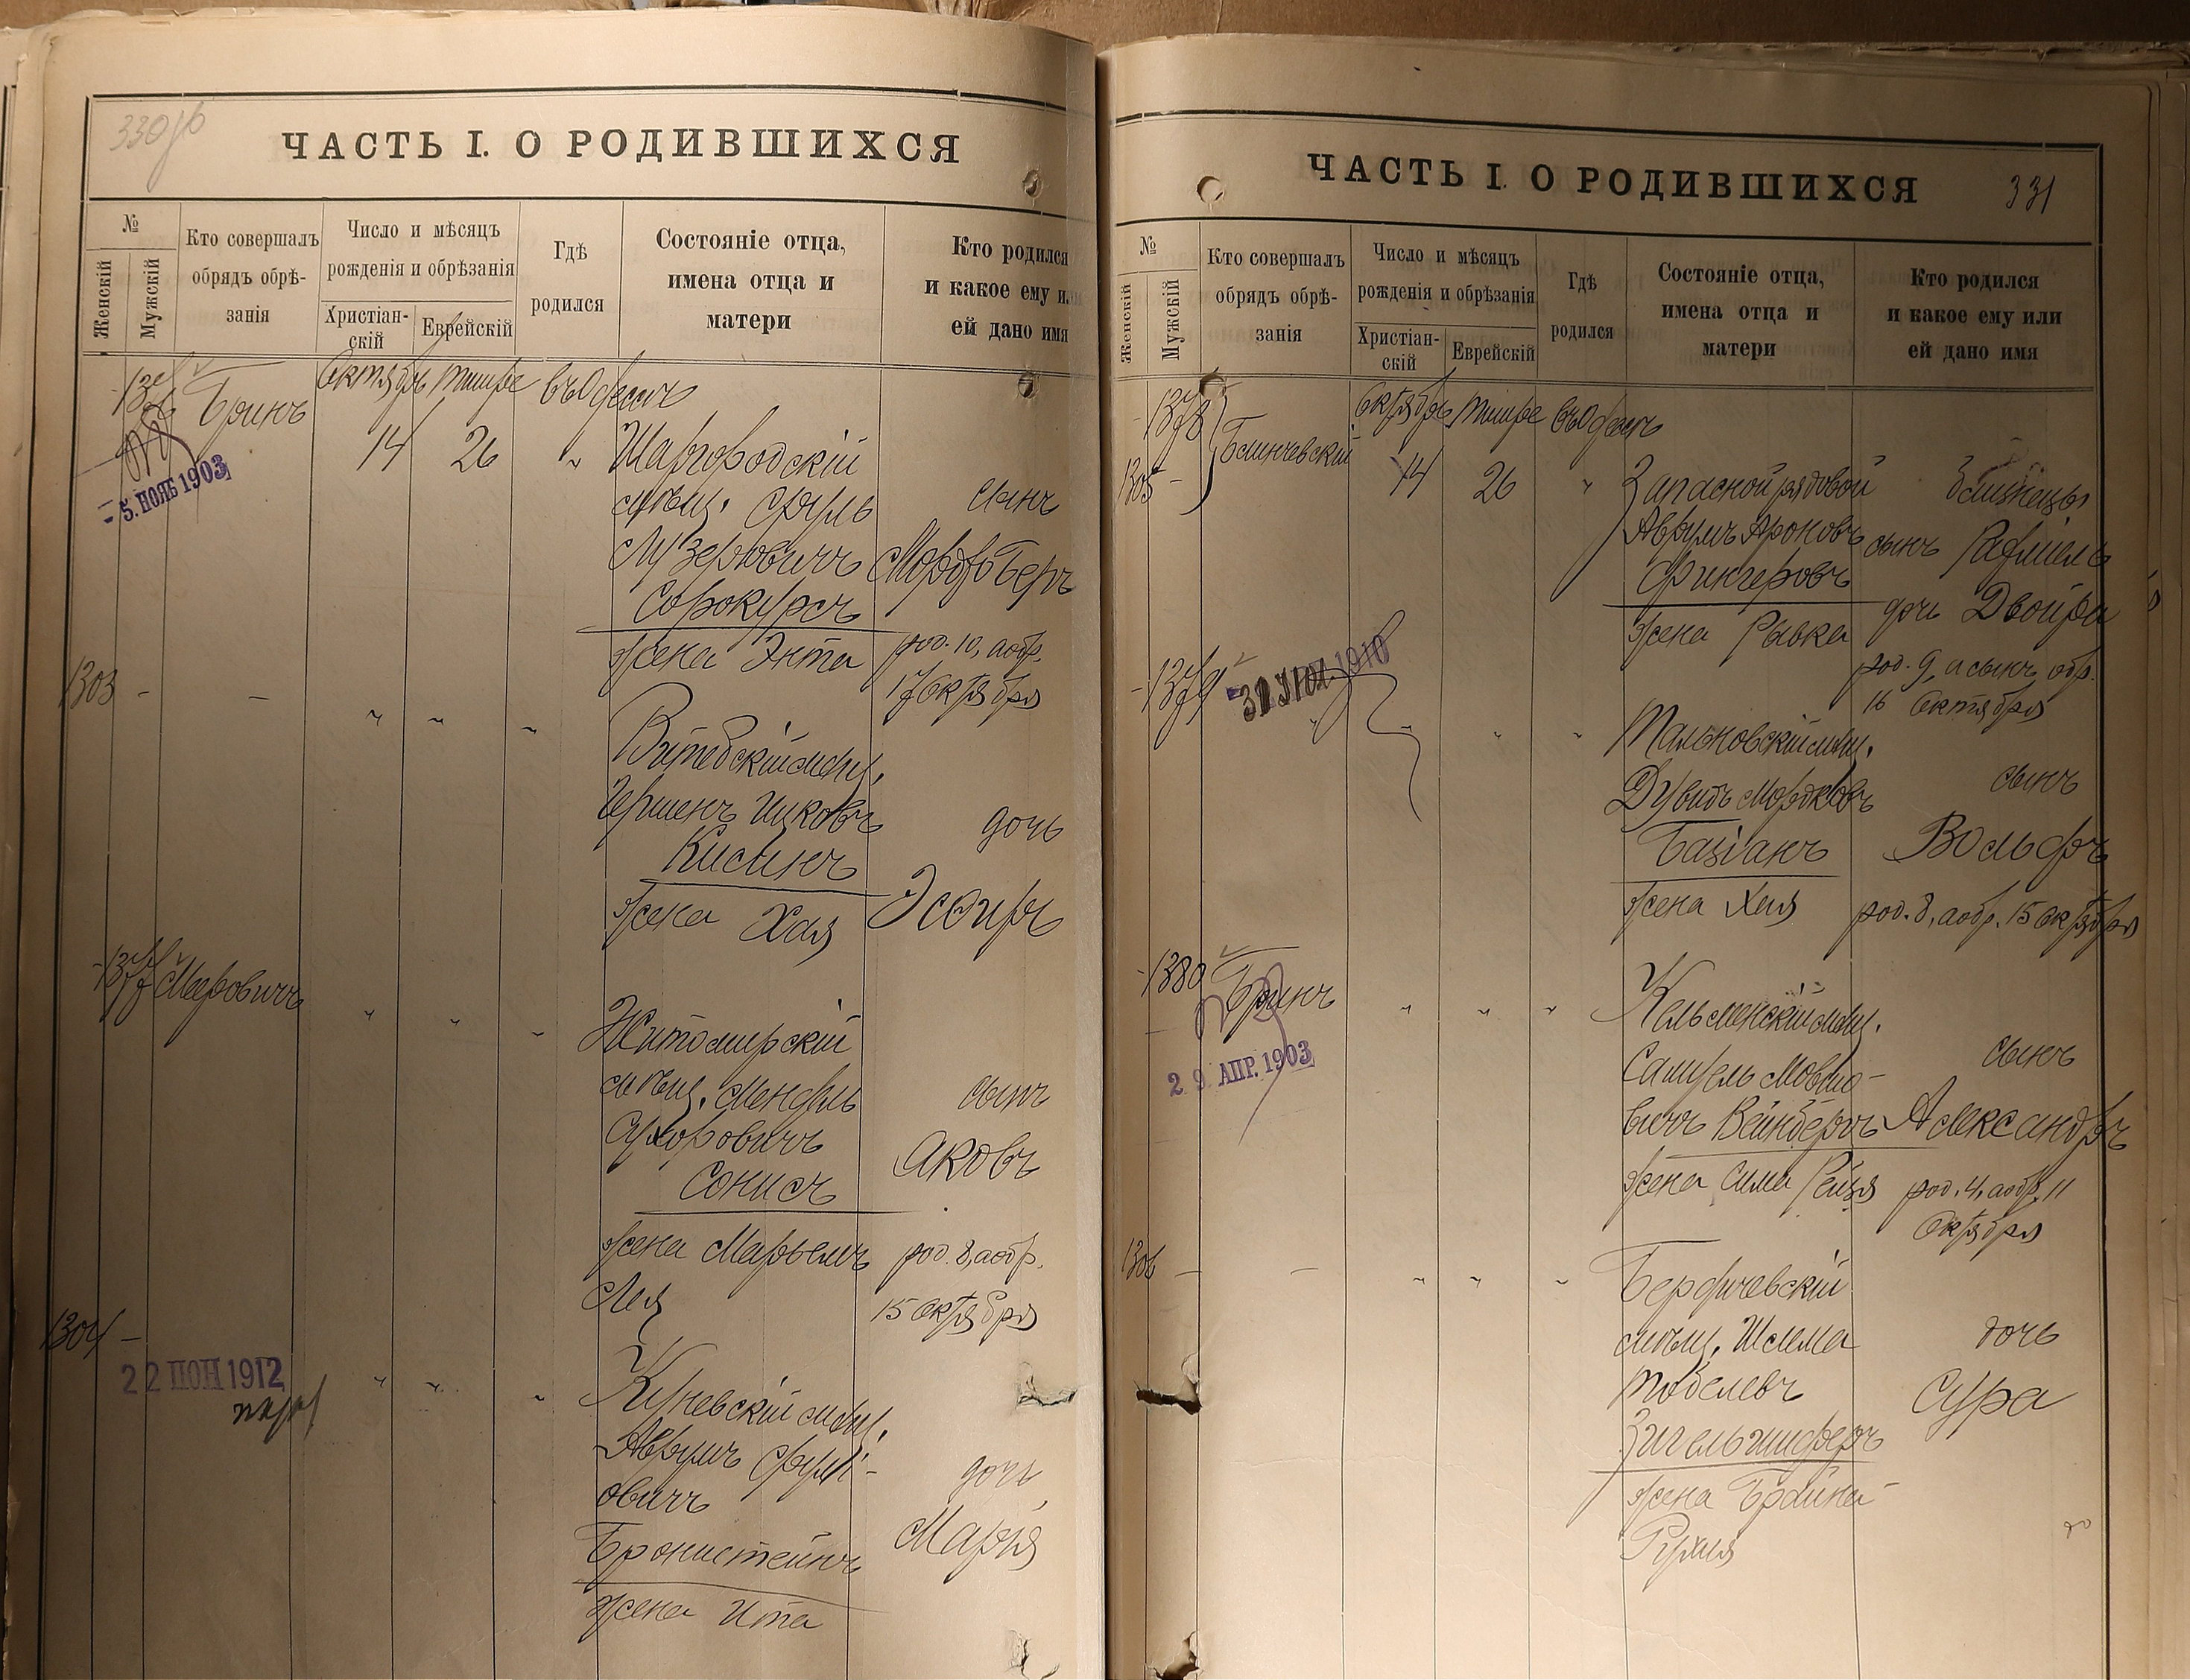 330 об
ЧАСТЬ I. О РОДИВШИХСЯ
№
Женскій
Мужскій
Кто совершалъ
обрядъ обрѣ-
занія
Число и мѣсяцъ
рожденія и обрѣзанія
Христіан-
скій
Еврейскій
Гдѣ
родился
Состояніе отца,
имена отца и
матери
Кто родился
и какое ему и
ей дано имя
1376 Бринъ Октябрь Тишре въ Одессѣ
14 26 " Шаргородскій
5. НОЯБ 1903
мѣщ. Сруль сынъ
Лузеровичъ Мордко Беръ
Сорокуръ
жена Энта род. 10, а обр.
17 Октября
1303 - - " " "
Витебскій мѣщ.
Гершенъ Ицковъ дочь
Кисинъ
жена Хая Эсѳирь
1377 Мееровичъ " " "
Житомирскій
мѣщ. Мендель сынъ
Сухоровичъ Яковъ
Сонисъ
жена Марьемъ род. 8, а обр.
Лея 15 Октября
1304 -
22 1912
" " " Куневскій мѣщ.
Аврумъ Срул- дочь
овичъ
Бронштейнъ Марія
жена Ита
ЧАСТЬ I. О РОДИВШИХСЯ 331
№
Женскій
Мужскій
Кто совершалъ
обрядъ обрѣ-
занія
Число и мѣсяцъ
рожденія и обрѣзанія
Христіан-
скій
Еврейскій
Гдѣ
родился
Состояніе отца,
имена отца и
матери
Кто родился
и какое ему или
ей дано имя
1378 Октябрь Тишре въ Одессѣ
1305 - Блинчевскій 14 26 " Запасной рядовой близнецы
Аврумъ Ароновъ сынъ Рафаиль
Фингеровъ дочь Двойра
жена Рывка
род. 9, а сынъ обр.
16 Октября
1379 1910
" " " Тальновскій мѣщ.
Дувидъ Мордковъ сынъ
Базіанъ Вольфъ
жена Хая род. 8, а обр. 15 Октября
1380 Бринъ " " "
29 АПР. 1903
Кельменскій мѣщ.
Самуель Мовшо- сынъ
вичъ Вейнбергъ Александръ
жена Сима Рейзя род. 4, а обр. 11
Октября
1306 - - " " "
Бердичевскій
мѣщ. Шлема дочь
Тобелевъ Сура
Зигельшиферъ
жена Бройна-
Рухля